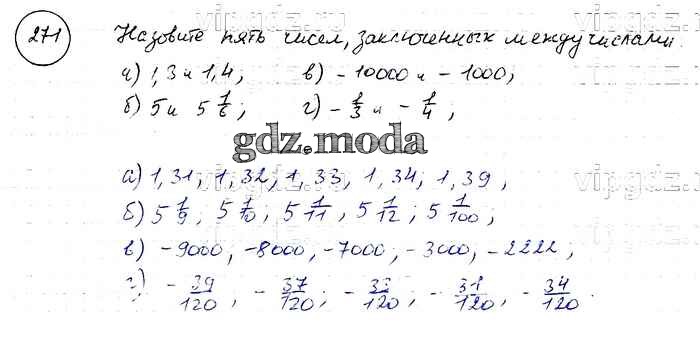 271 Назовите пять чисел, заключенных между числами.
а) 1,3 и 1,4; в) -10000 и -1000;
б) 5 и 5 1/6; г) -1/3 и -1/4;
gdz.moda
а) 1,31; 1,32; 1,33; 1,34; 1,39;
б) 5 1/9; 5 1/10; 5 1/11; 5 1/12; 5 1/100;
в) -9000; -8000; -7000; -3000; -2222;
г) -39/120; -37/120; -33/120; -31/120; -34/120.
vipgdz.ru